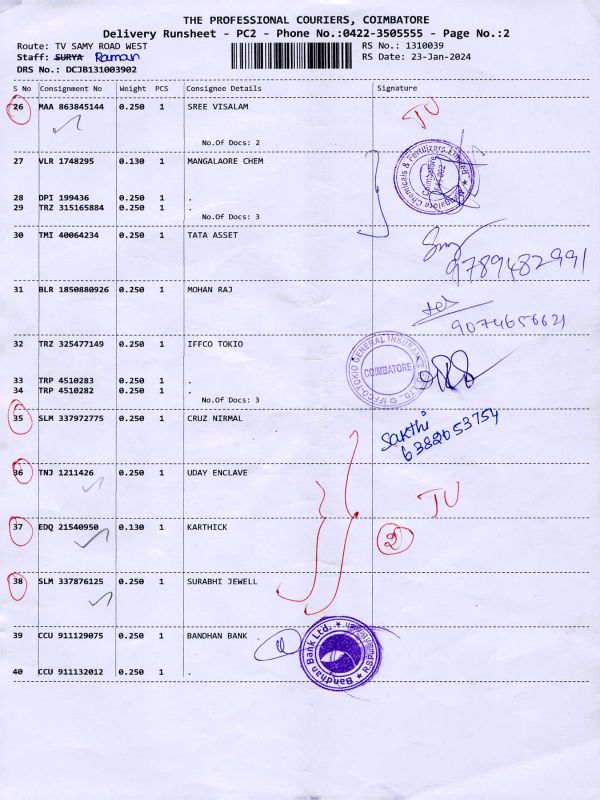 THE PROFESSIONAL COURIERS, COIMBATORE
Delivery Runsheet - PC2 - Phone No.:0422-3505555 - Page No.:2
Route: TV SAMY ROAD WEST
RS No.: 1310039
Staff: SURYA Raman
RS Date: 23-Jan-2024
DRS No.: DCJB131003902
S No Consignment No Weight PCS Consignee Details Signature
26 MAA 863845144 0.250 1 SREE VISALAM
No.Of Docs: 2
27 VLR 1748295 0.130 1 MANGALAORE CHEM
Mangalore Chemicals & Fertilizers Limited
28 DPI 199436 0.250 1 .
29 TRZ 315165884 0.250 1 .
No.Of Docs: 3
30 TMI 40064234 0.250 1 TATA ASSET
9789482991
31 BLR 1850880926 0.250 1 MOHAN RAJ
9074656621
32 TRZ 325477149 0.250 1 IFFCO TOKIO
IFFCO-TOKIO GENERAL INSURANCE CO. LTD.
COIMBATORE
33 TRP 4510283 0.250 1 .
34 TRP 4510282 0.250 1 .
No.Of Docs: 3
35 SLM 337972775 0.250 1 CRUZ NIRMAL
Sakthi
6382053754
36 TNJ 1211426 0.250 1 UDAY ENCLAVE
37 EDQ 21540950 0.130 1 KARTHICK
2
38 SLM 337876125 0.250 1 SURABHI JEWELL
39 CCU 911129075 0.250 1 BANDHAN BANK
Bandhan Bank Ltd.
40 CCU 911132012 0.250 1 .